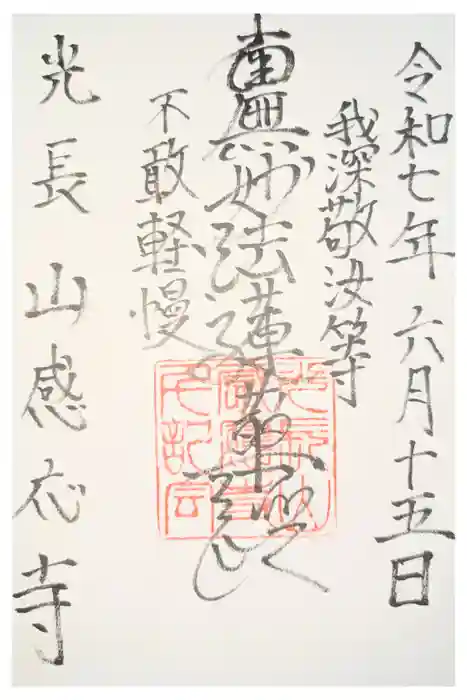 令和七年六月十五日
我深敬汝等
南無妙法蓮華経
不敢軽慢
光長山感応寺